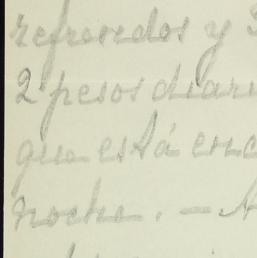 refrescos y
2 pesos diari
que está enc
noche. — A